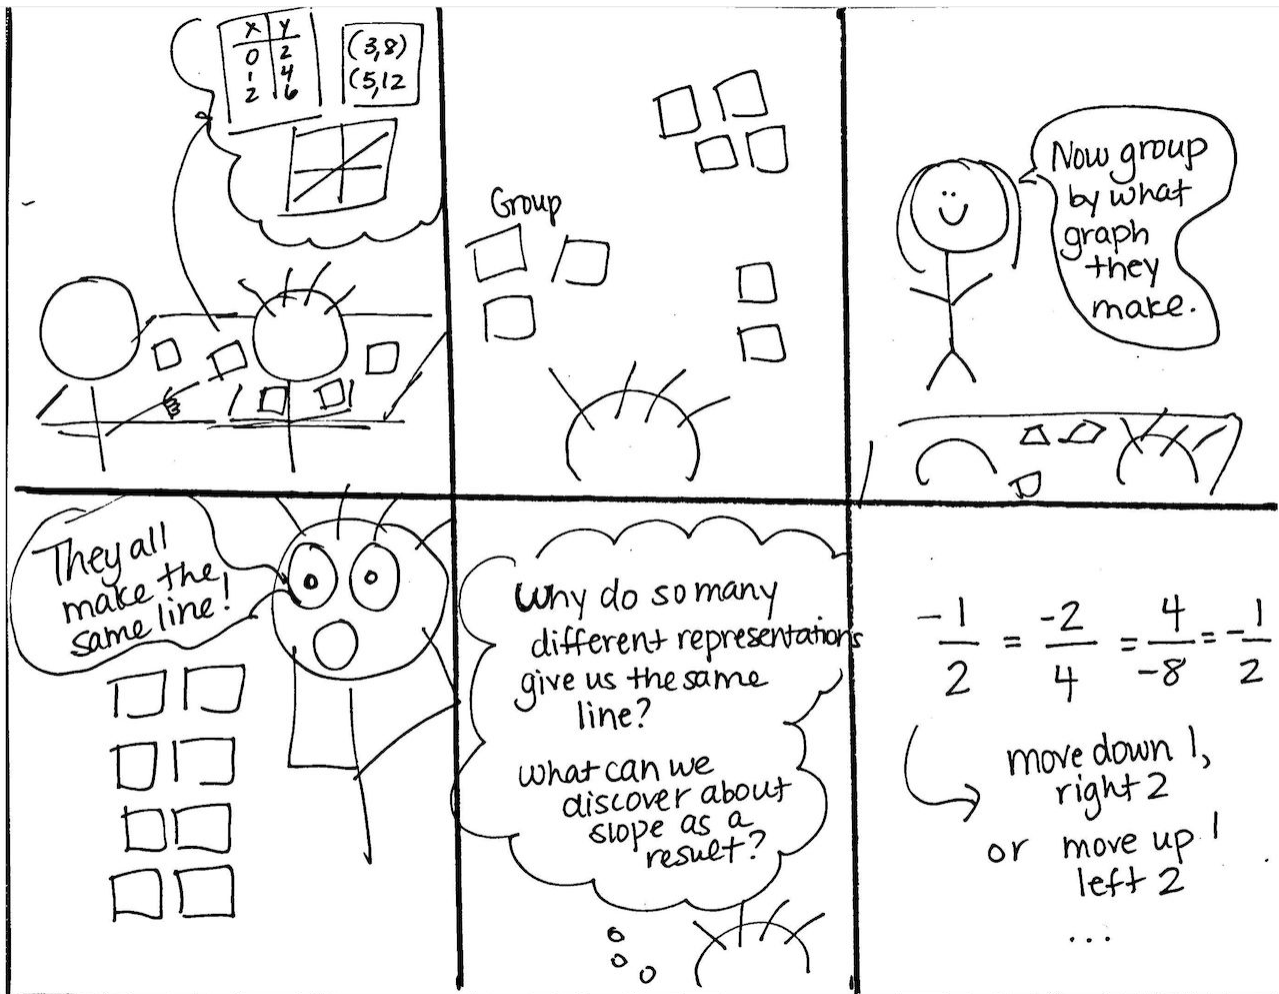 X Y
0 2
1 4
2 6
(3,8)
(5,12
Group
Now group
by what
graph
they
make.
They all
make the
same line!
Why do so many
different representations
give us the same
line?
What can we
discover about
slope as a
result?
-1/2 = -2/4 = 4/-8 = -1/2
move down 1,
right 2
or move up 1
left 2
...